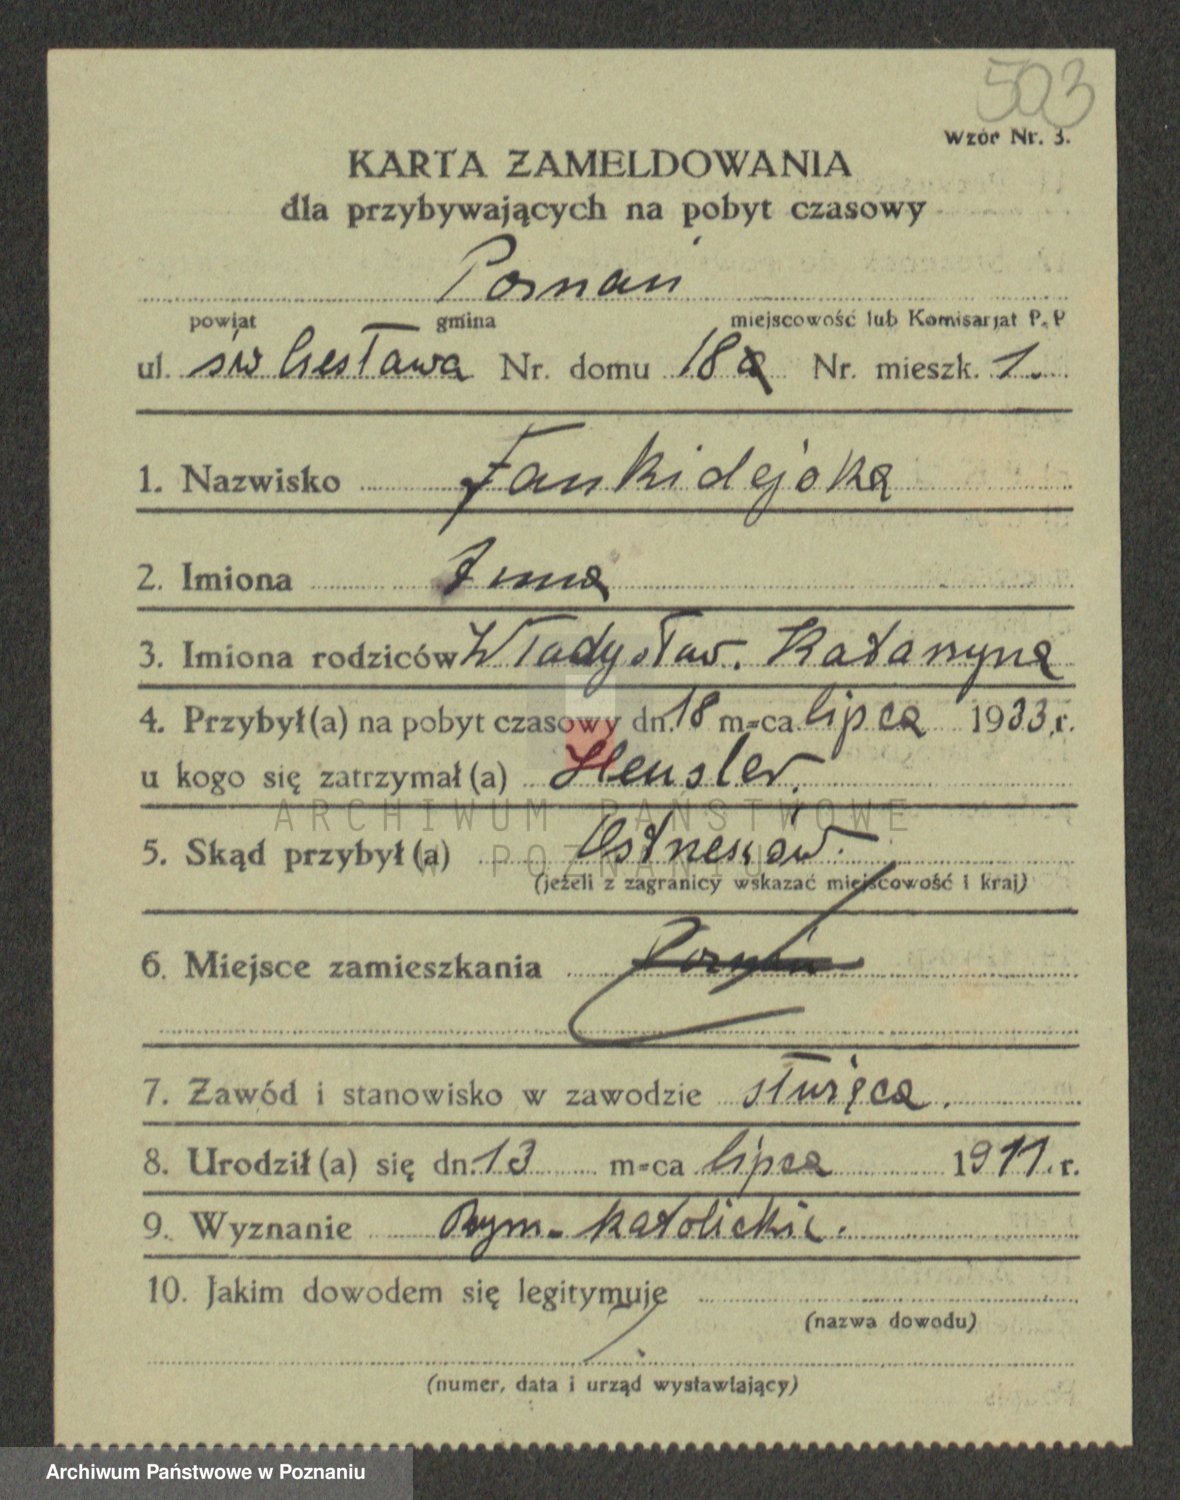 503
Wzór Nr. 3.
KARTA ZAMELDOWANIA
dla przybywających na pobyt czasowy
Poznań
powiat gmina miejscowość lub Komisarjat P. P
ul. św Czesława Nr. domu 18a Nr. mieszk. 1.
1. Nazwisko
2. Imiona Anna
3. Imiona rodziców Władysław. Katarzyna
4. Przybył(a) na pobyt czasowy dn. 18 m-ca lipca 1933,r.
u kogo się zatrzymał(a) Heusler.
ARCHIWUM PAŃSTWOWE
W POZNANIU
5. Skąd przybył(a)
(jeżeli z zagranicy wskazać miejscowość i kraj)
6. Miejsce zamieszkania
7. Zawód i stanowisko w zawodzie służąca.
8. Urodził(a) się dn. 13 m-ca lipca 1911. r.
9. Wyznanie Rzym-katolickie.
10. Jakim dowodem się legitymuje
(nazwa dowodu)
(numer, data i urząd wystawiający)
Archiwum Państwowe w Poznaniu